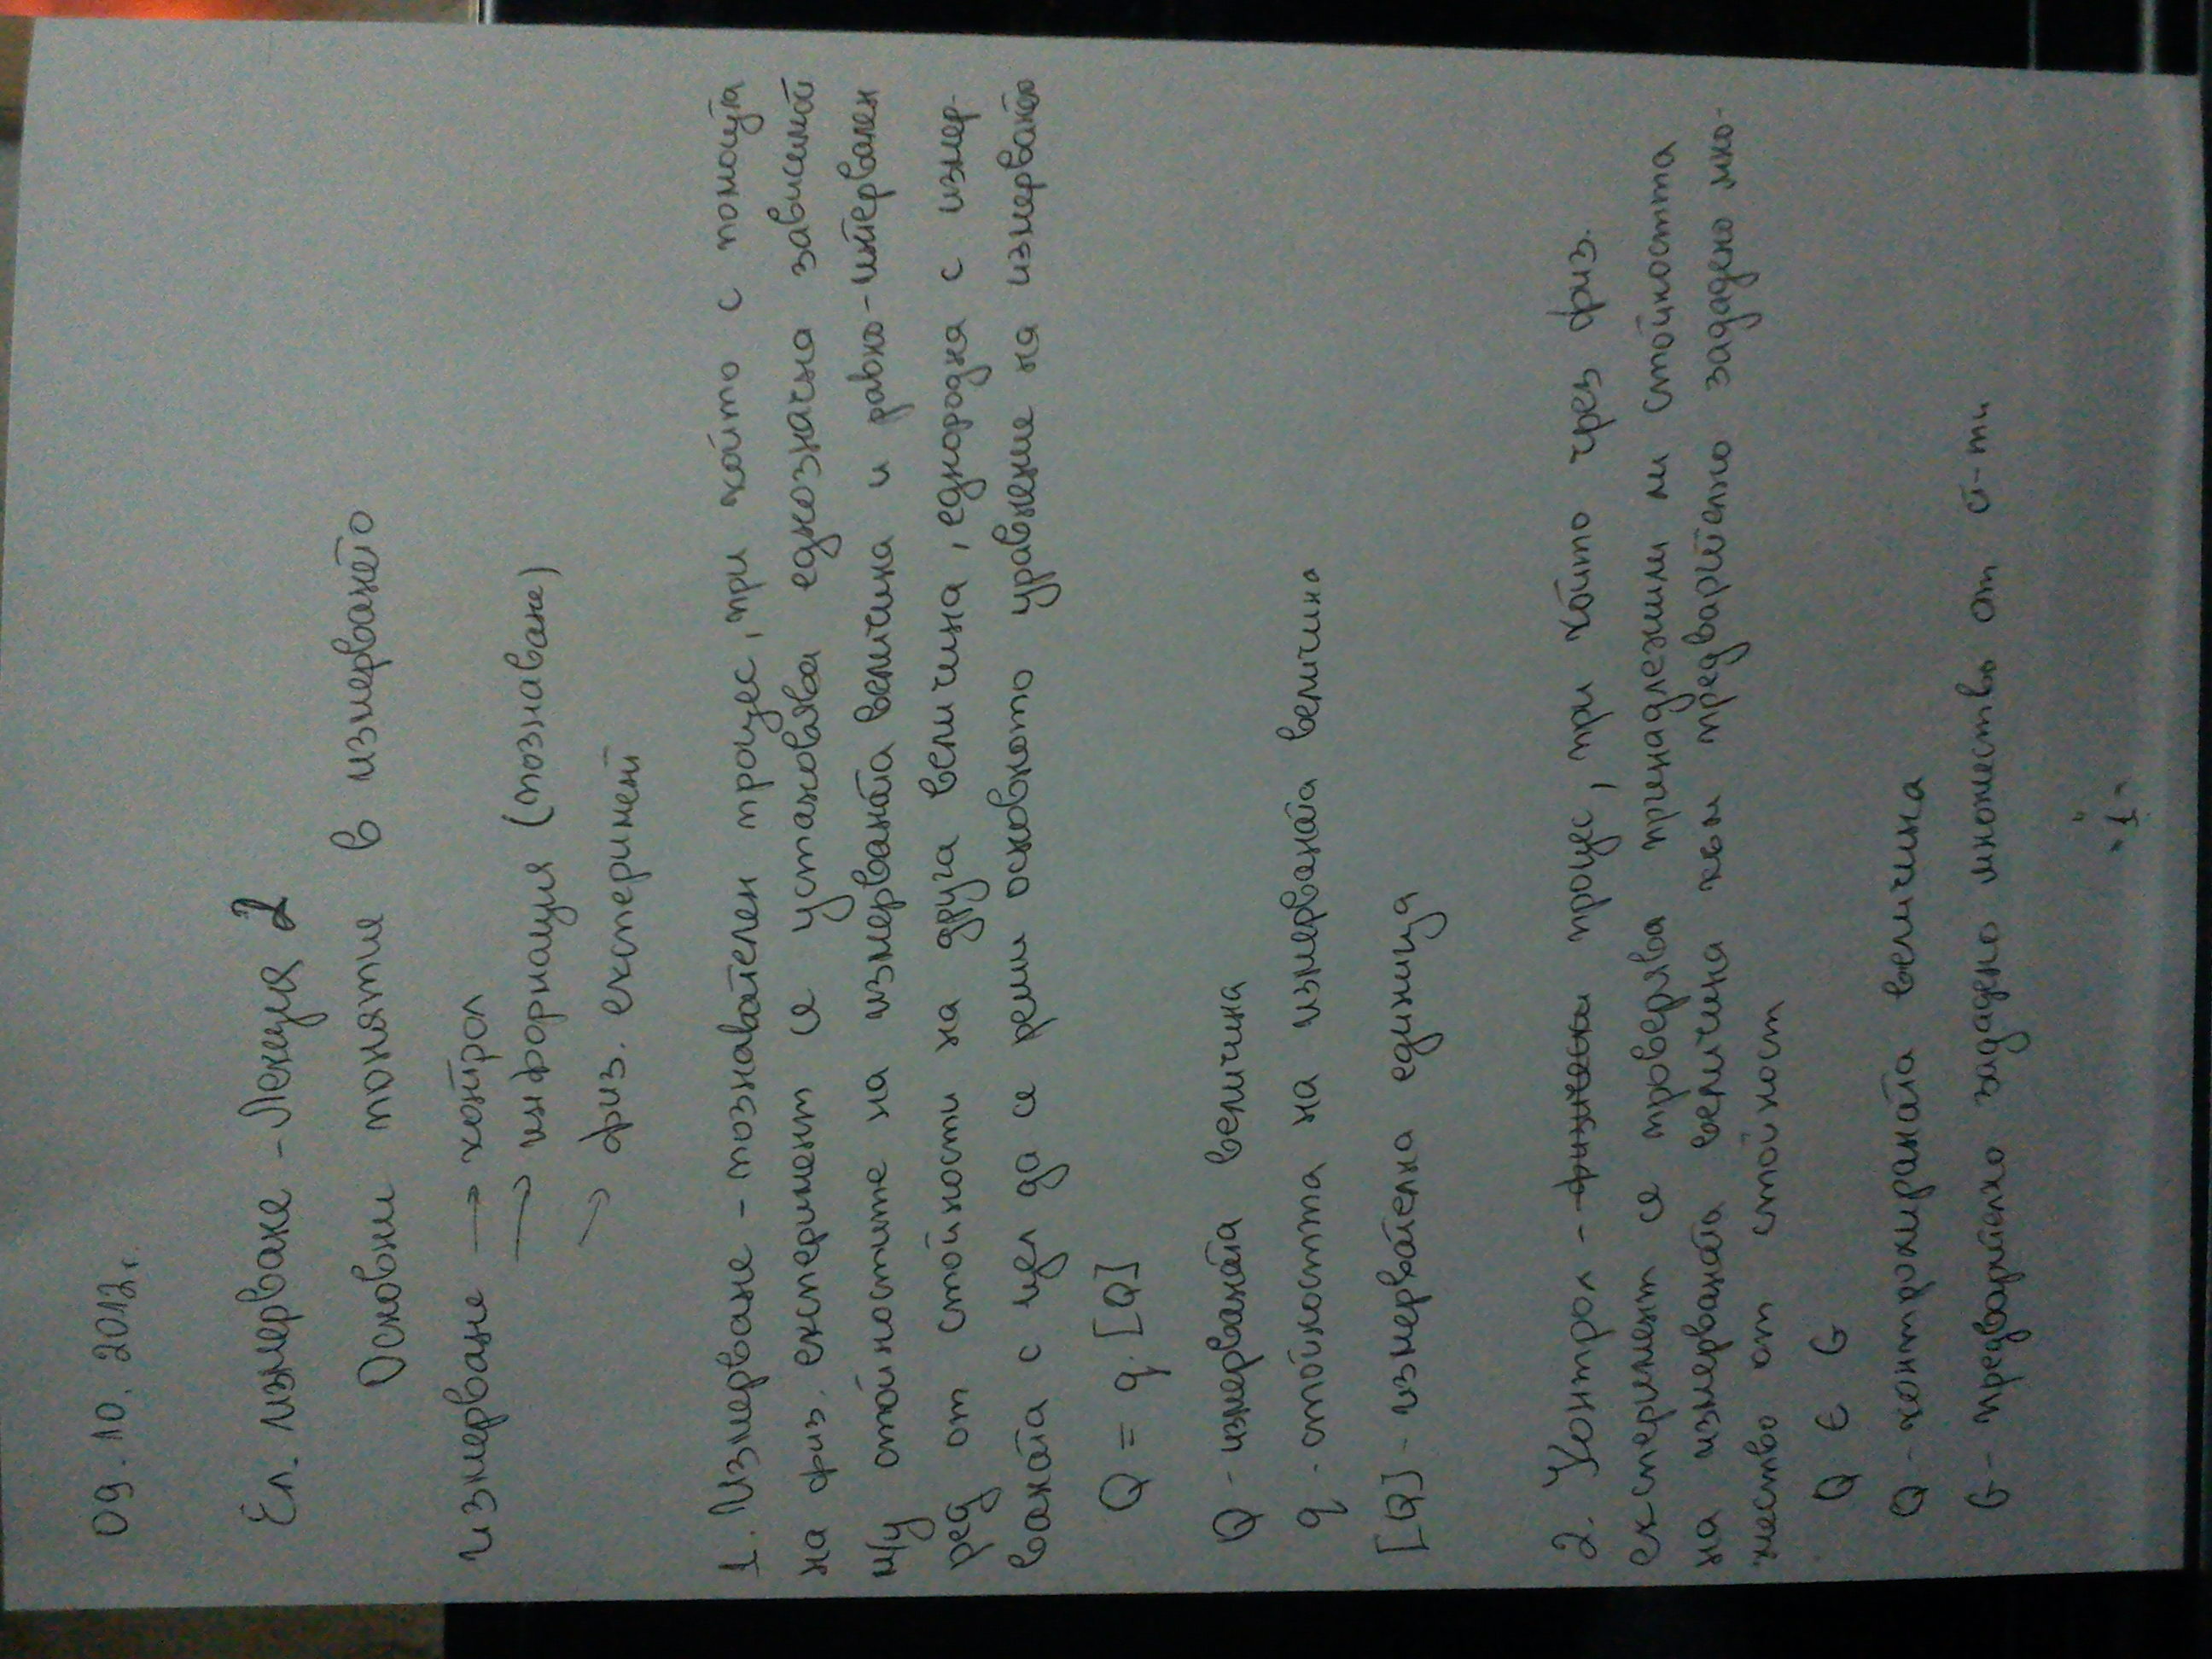 09.10.2012г.
Ел. измерване - Лекция 2
Основни понятия в измерването
Измерване → контрол
→ информация (познаване)
→ физ. експеримент
1. Измерване - познавателен процес, при който с помощта
на физ. експеримент се установява еднозначна зависимост
м/у стойностите на измерваната величина и равно-интервален
ред от стойности на друга величина, еднородна с измер-
ваната с цел да се реши основното уравнение на измерването
Q = q.[Q]
Q - измерваната величина
q - стойността на измерваната величина
[Q] - измервателна единица
2. Контрол - процес, при който чрез физ.
експеримент се проверява принадлежи ли стойността
на измерваната величина към предварително зададено мно-
жество от стойност
Q ∈ G
Q - контролираната величина
G - предварително зададено множество от ст-ти
"1"